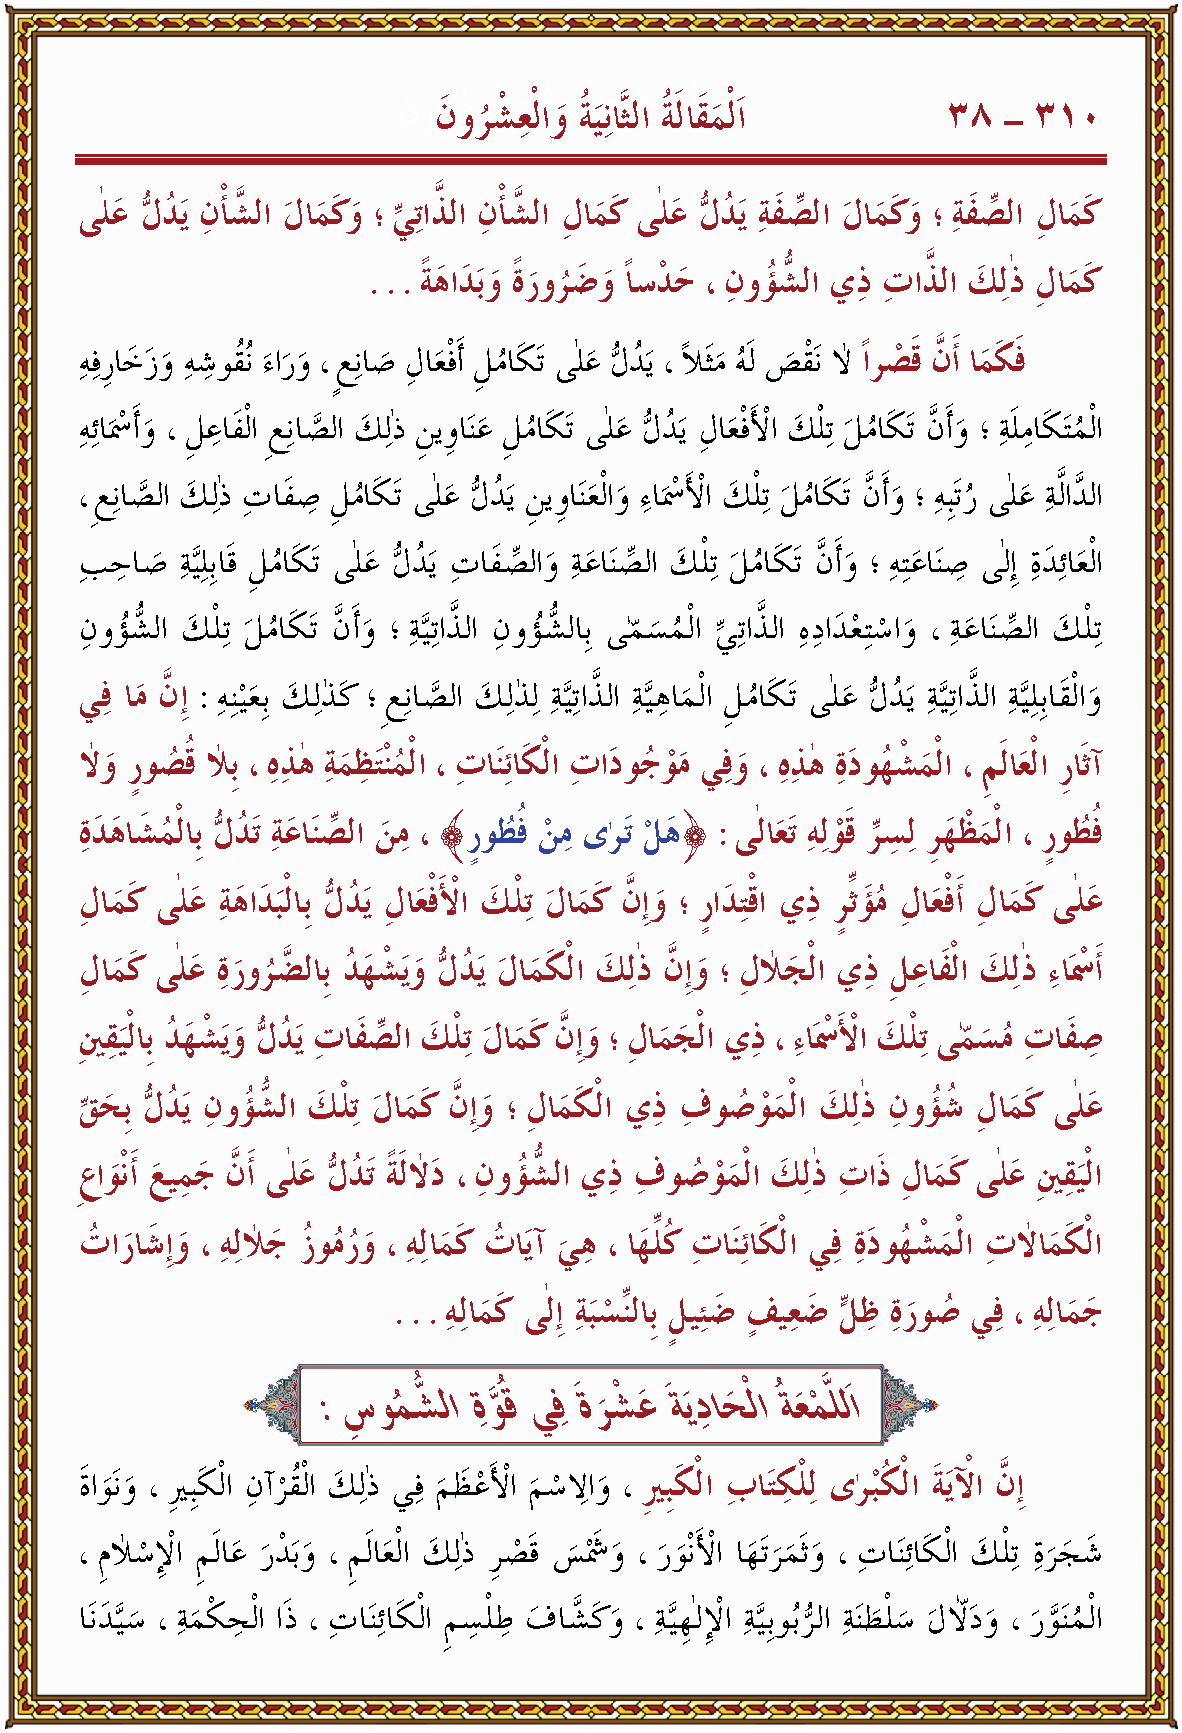 ٣١٠ – ٣٨ اَلْمَقَالَةُ الثَّانِيَةُ وَالْعِشْرُونَ
كَمَالِ الصِّفَةِ ؛ وَكَمَالَ الصِّفَةِ يَدُلُّ عَلٰى كَمَالِ الشَّأْنِ الذَّاتِيِّ ؛ وَكَمَالَ الشَّأْنِ يَدُلُّ عَلٰى
كَمَالِ ذٰلِكَ الذَّاتِ ذِي الشُّؤُونِ ، حَدْساً وَضَرُورَةً وَبَدَاهَةً . . .
فَكَمَا أَنَّ قَصْراً لَا نَقْصَ لَهُ مَثَلاً ، يَدُلُّ عَلٰى تَكَامُلِ أَفْعَالِ صَانِعٍ ، وَرَاءَ نُقُوشِهِ وَزَخَارِفِهِ
الْمُتَكَامِلَةِ ؛ وَأَنَّ تَكَامُلَ تِلْكَ الْأَفْعَالِ يَدُلُّ عَلٰى تَكَامُلِ عَنَاوِينِ ذٰلِكَ الصَّانِعِ الْفَاعِلِ ، وَأَسْمَائِهِ
الدَّالَّةِ عَلٰى رُتَبِهِ ؛ وَأَنَّ تَكَامُلَ تِلْكَ الْأَسْمَاءِ وَالْعَنَاوِينِ يَدُلُّ عَلٰى تَكَامُلِ صِفَاتِ ذٰلِكَ الصَّانِعِ ،
الْعَائِدَةِ إِلٰى صِنَاعَتِهِ ؛ وَأَنَّ تَكَامُلَ تِلْكَ الصِّنَاعَةِ وَالصِّفَاتِ يَدُلُّ عَلٰى تَكَامُلِ قَابِلِيَّةِ صَاحِبِ
تِلْكَ الصِّنَاعَةِ ، وَاسْتِعْدَادِهِ الذَّاتِيِّ الْمُسَمّٰى بِالشُّؤُونِ الذَّاتِيَّةِ ؛ وَأَنَّ تَكَامُلَ تِلْكَ الشُّؤُونِ
وَالْقَابِلِيَّةِ الذَّاتِيَّةِ يَدُلُّ عَلٰى تَكَامُلِ الْمَاهِيَّةِ الذَّاتِيَّةِ لِذٰلِكَ الصَّانِعِ ؛ كَذٰلِكَ بِعَيْنِهِ : إِنَّ مَا فِي
آثَارِ الْعَالَمِ ، الْمَشْهُودَةِ هٰذِهِ ، وَفِي مَوْجُودَاتِ الْكَائِنَاتِ ، الْمُنْتَظِمَةِ هٰذِهِ ، بِلَا قُصُورٍ وَلَا
فُطُورٍ ، الْمَظْهَرِ لِسِرِّ قَوْلِهِ تَعَالٰى : ﴿هَلْ تَرٰى مِنْ فُطُورٍ﴾ ، مِنَ الصِّنَاعَةِ تَدُلُّ بِالْمُشَاهَدَةِ
عَلٰى كَمَالِ أَفْعَالِ مُؤَثِّرٍ ذِي اقْتِدَارٍ ؛ وَإِنَّ كَمَالَ تِلْكَ الْأَفْعَالِ يَدُلُّ بِالْبَدَاهَةِ عَلٰى كَمَالِ
أَسْمَاءِ ذٰلِكَ الْفَاعِلِ ذِي الْجَلَالِ ؛ وَإِنَّ ذٰلِكَ الْكَمَالَ يَدُلُّ وَيَشْهَدُ بِالضَّرُورَةِ عَلٰى كَمَالِ
صِفَاتِ مُسَمّٰى تِلْكَ الْأَسْمَاءِ ، ذِي الْجَمَالِ ؛ وَإِنَّ كَمَالَ تِلْكَ الصِّفَاتِ يَدُلُّ وَيَشْهَدُ بِالْيَقِينِ
عَلٰى كَمَالِ شُؤُونِ ذٰلِكَ الْمَوْصُوفِ ذِي الْكَمَالِ ؛ وَإِنَّ كَمَالَ تِلْكَ الشُّؤُونِ يَدُلُّ بِحَقِّ
الْيَقِينِ عَلٰى كَمَالِ ذَاتِ ذٰلِكَ الْمَوْصُوفِ ذِي الشُّؤُونِ ، دَلَالَةً تَدُلُّ عَلٰى أَنَّ جَمِيعَ أَنْوَاعِ
الْكَمَالَاتِ الْمَشْهُودَةِ فِي الْكَائِنَاتِ كُلِّهَا ، هِيَ آيَاتُ كَمَالِهِ ، وَرُمُوزُ جَلَالِهِ ، وَإِشَارَاتُ
جَمَالِهِ ، فِي صُورَةِ ظِلٍّ ضَعِيفٍ ضَئِيلٍ بِالنِّسْبَةِ إِلٰى كَمَالِهِ . . .
اَللَّمْعَةُ الْحَادِيَةَ عَشْرَةَ فِي قُوَّةِ الشُّمُوسِ :
إِنَّ الْآيَةَ الْكُبْرٰى لِلْكِتَابِ الْكَبِيرِ ، وَالِاسْمَ الْأَعْظَمَ فِي ذٰلِكَ الْقُرْآنِ الْكَبِيرِ ، وَنَوَاةَ
شَجَرَةِ تِلْكَ الْكَائِنَاتِ ، وَثَمَرَتَهَا الْأَنْوَرَ ، وَشَمْسَ قَصْرِ ذٰلِكَ الْعَالَمِ ، وَبَدْرَ عَالَمِ الْإِسْلَامِ ،
الْمُنَوَّرَ ، وَدَلَّالَ سَلْطَنَةِ الرُّبُوبِيَّةِ الْإِلٰهِيَّةِ ، وَكَشَّافَ طِلْسِمِ الْكَائِنَاتِ ، ذَا الْحِكْمَةِ ، سَيَّدَنَا